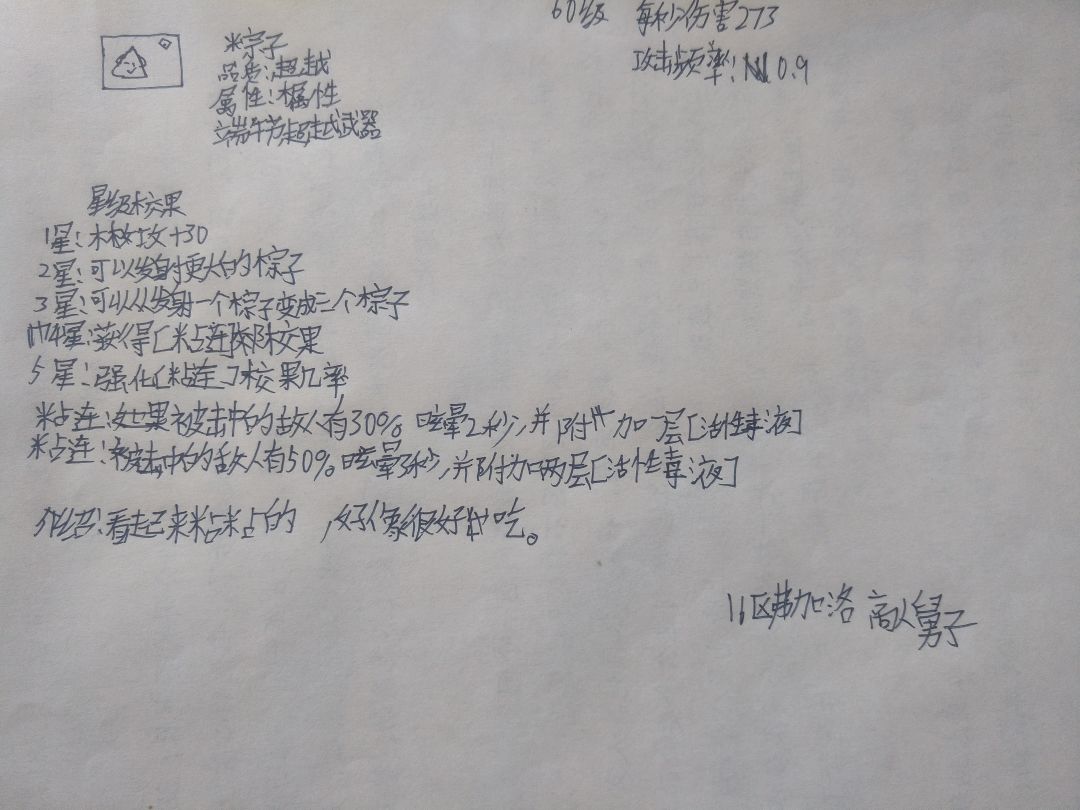 60级 每秒伤害273
攻击频率:0.9
粽子
品质:超越
属性:木属性
端午节超越武器
星级效果
1星:木枚攻+30
2星:可以发射更大的粽子
3星:可以从发射一个粽子变成三个粽子
4星:获得[粘连]效果
5星:强化[粘连]效果几率
粘连:如果被击中的敌人有30%眩晕2秒,并附加一层[活性毒液]
粘连:被击中的敌人有50%眩晕3秒,并附加两层[活性毒液]
介绍:看起来粘粘的,好像很好吃。
11区弗加洛 舅子